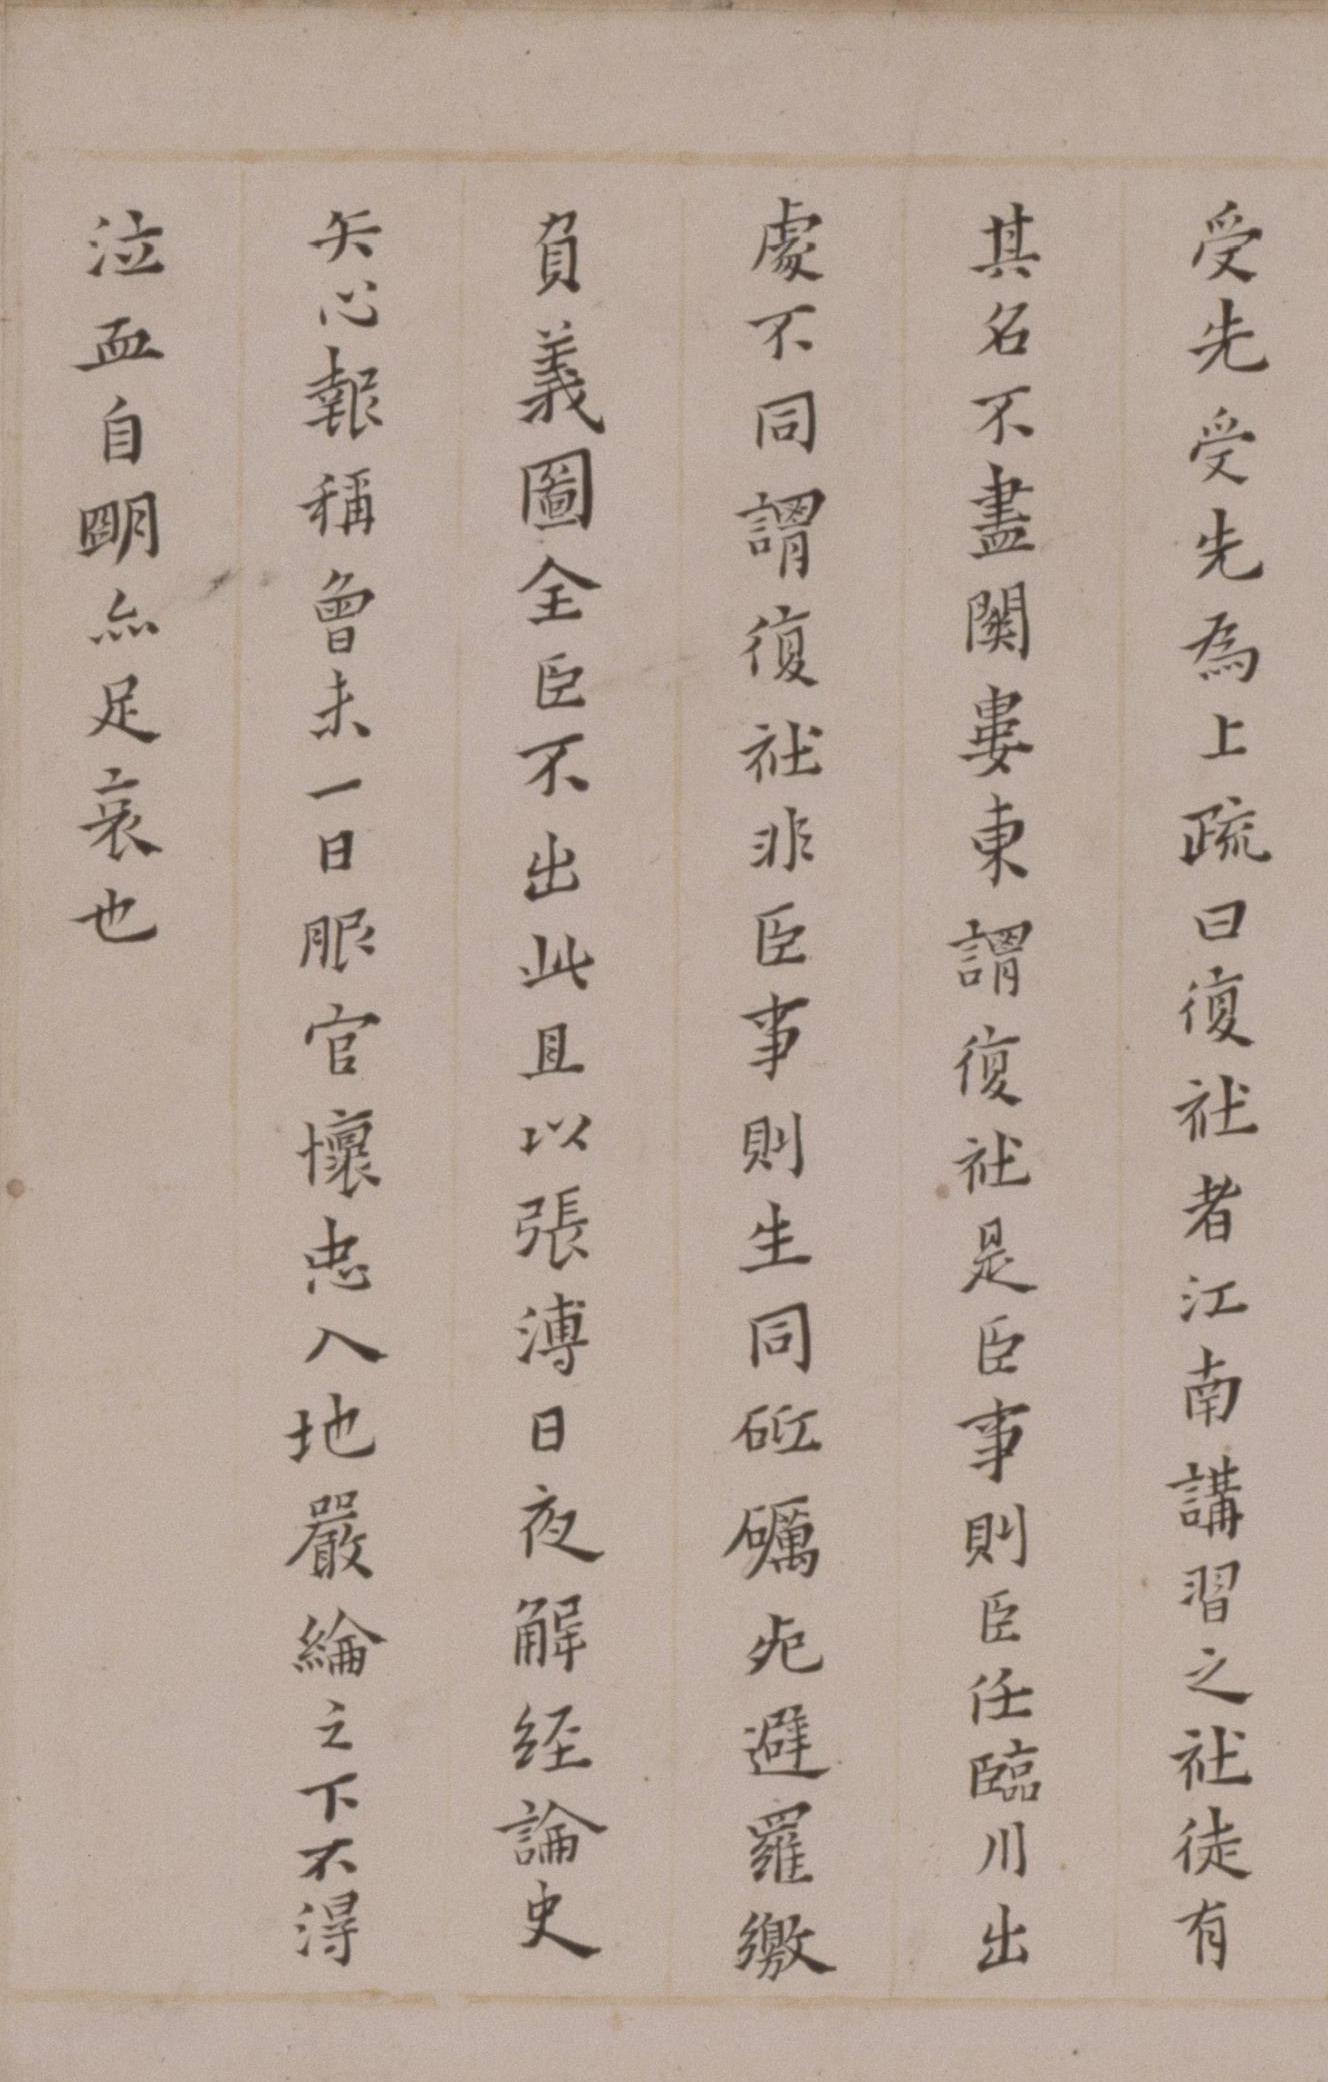 受先受先為上疏曰復社者江南講習之社徒有
其名不盡關婁東謂復社是臣事則臣任臨川出
處不同謂復社非臣事則生同砥礪死避羅繳
負義圖全臣不出此且以張溥日夜解經論史
矢心報稱曾未一日服官懷忠入地嚴綸之下不得
泣血自明亦足哀也